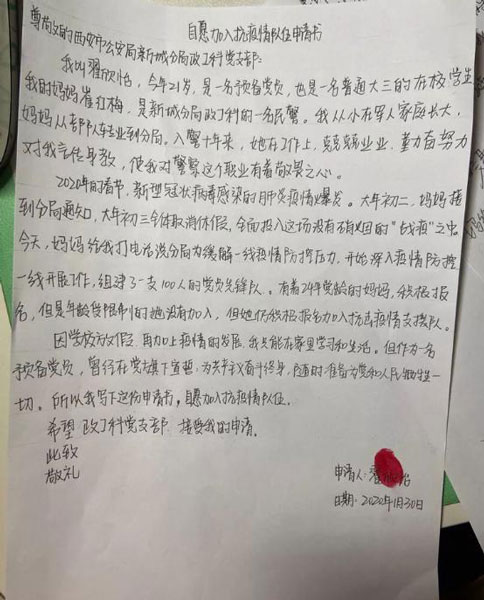 自愿加入抗疫情队伍申请书
尊尚的西安市公安局新城分局政工科党支部：
我叫翟欣怡，今年21岁，是一名预备党员，也是一名普通大三的在校学生
我的妈妈崔红梅，是新城分局政工科的一名民警。我从小在军人家庭长大，
妈妈从部队转业到分局。入警十年来，她在工作上，兢兢业业，勤奋努力
对我言传身教，使我对警察这个职业有着敬畏之心。
2020年的春节，新型冠状病毒感染的肺炎疫情爆发。大年初二，妈妈接
到分局通知，大年初三全体取消休假，全面投入这场没有硝烟的“战疫”之中
今天，妈妈给我打电话说分局为缓解一线疫情防控压力，开始深入疫情防控
一线开展工作，组建了一支100人的党员先锋队。有着24年党龄的妈妈，积极报
名，但是年龄受限制的她没有加入，但她仍积极报名加入抗击疫情支援队。
因学校放假，再加上疫情的发展，我只能在家里学习和生活。但作为一名
预备党员，曾经在党旗下宣誓，为共产主义奋斗终身，随时准备为党和人民牺牲一
切。所以我写下这份申请书，自愿加入抗疫情队伍。
希望 政工科党支部 接受我的申请。
此致
敬礼
申请人：翟 怡
日期：2020年1月30日